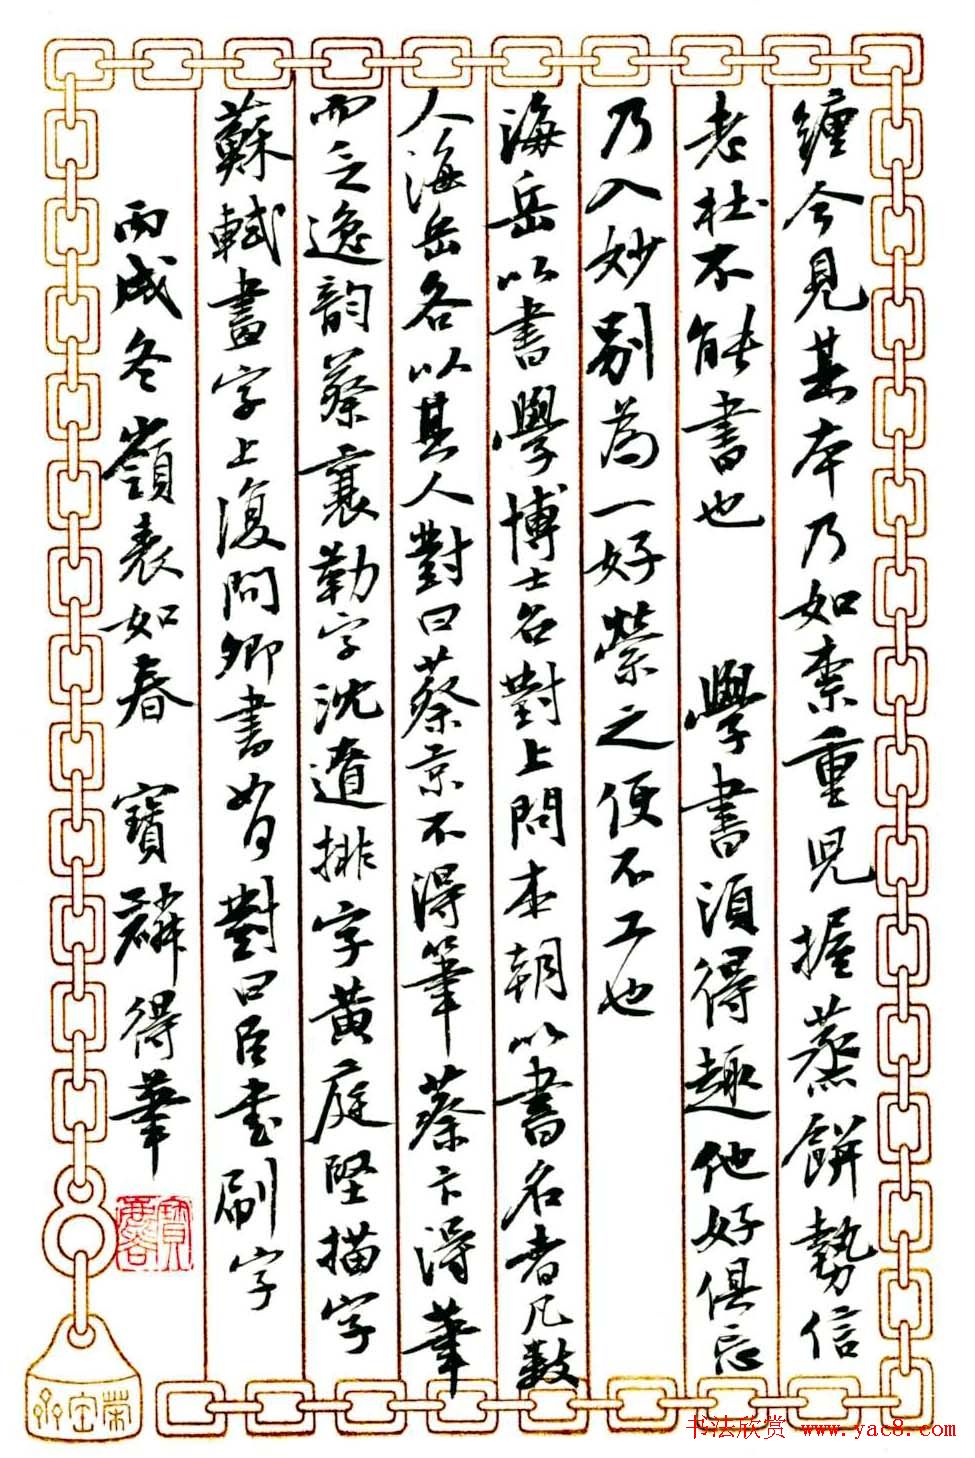 纏今見其本乃如柰重兒握蒸餅勢信
老杜不能書也　學書須得趣他好俱忘
乃入妙別為一好縈之便不工也
海岳以書學博士召對上問本朝以書名者凡數
人海岳各以其人對曰蔡京不得筆蔡卞得筆
而乏逸韵蔡襄勒字沈遼排字黃庭堅描字
蘇軾畫字上復問卿書如何對曰臣書刷字
丙戌冬嶺表如春　寶麟得華
书法欣赏 www.yac8.com